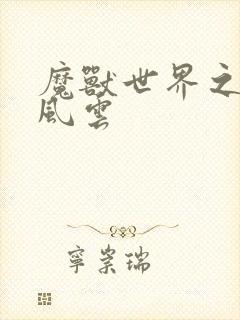 魔獸世界之
風雲
寧崇瑞